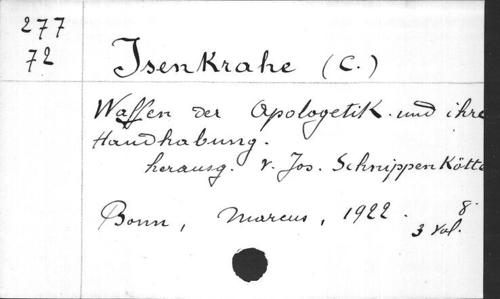 277
72
Isenkrahe (C.)
Waffen der Apologetik und ihre
Handhabung.
herausg. v. Jos. Schnippenkötte
Bonn, Marcus, 1922. 8°
3 vol.